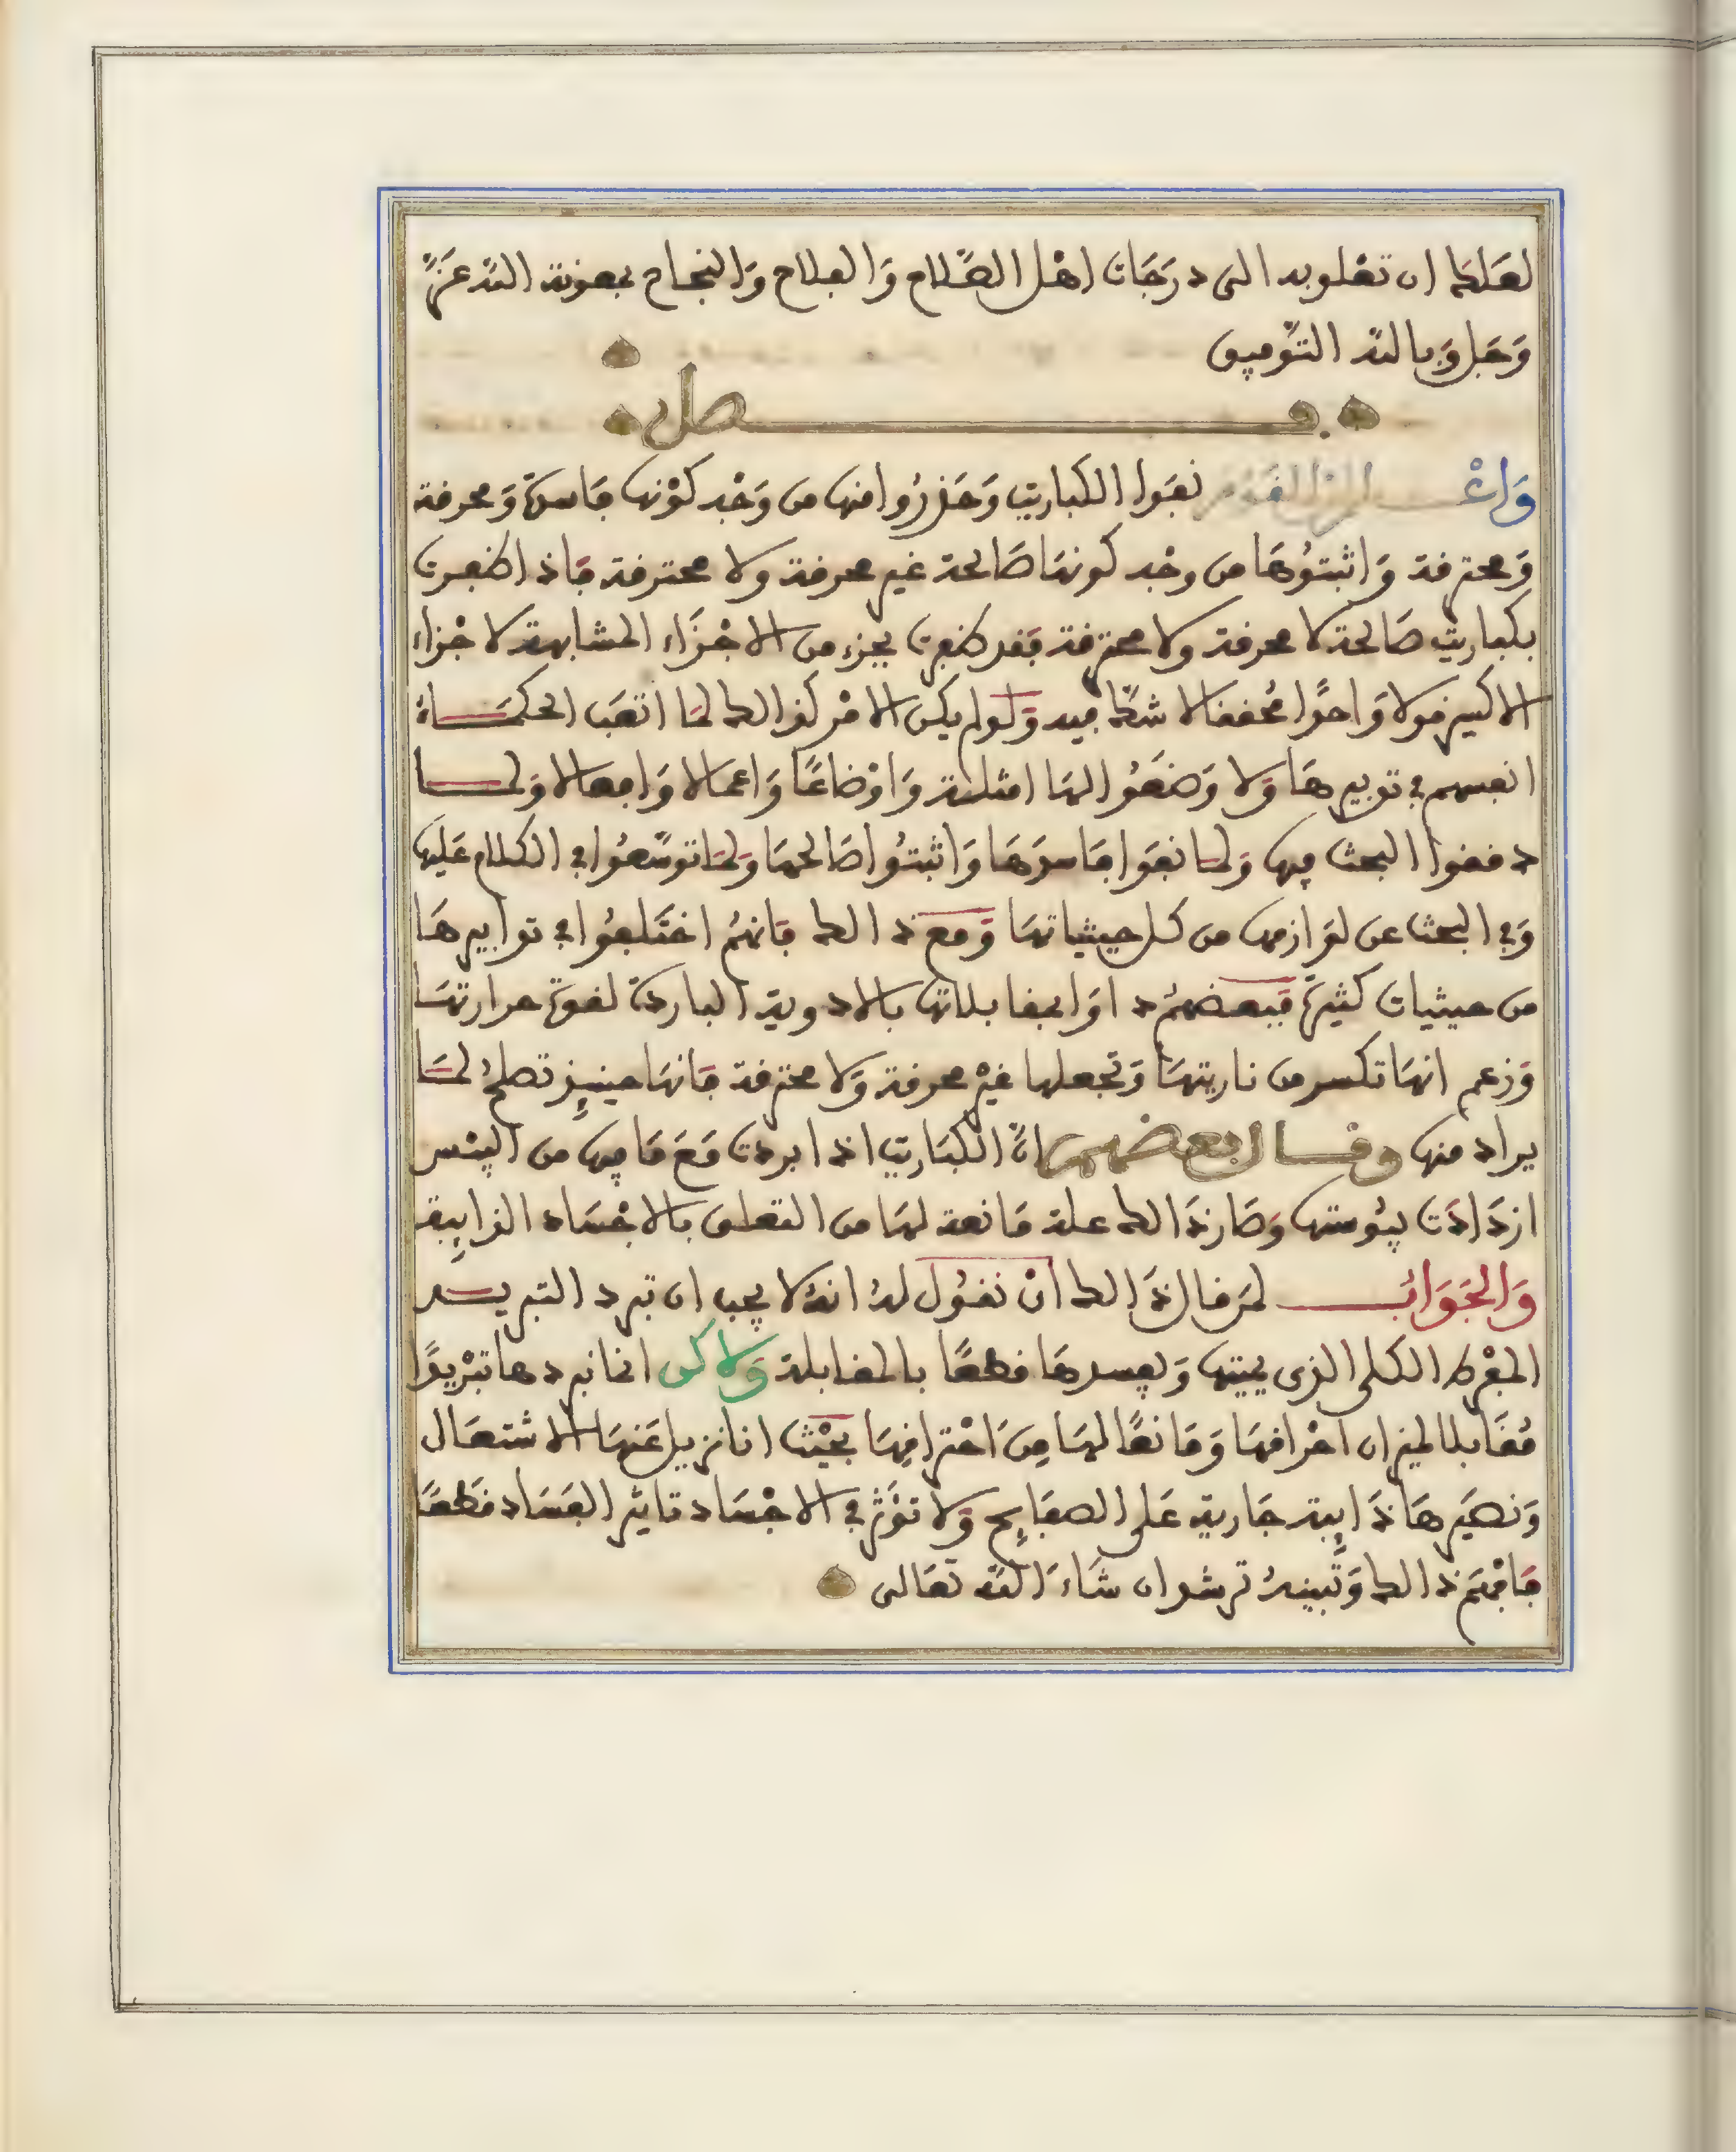 لعَلَّك ان تعْلو به الى درَجَات اهْل الصَّلاح وَالفلاح وَالنجاح بمعونة اللَّه عَزَّ
وَجَل وَبالله التَّوفيق
فصل
وَاعْلم ان القَوم نفَوا الكباريت وَحَذرُوا منها من وَجْه كوْنها فاسدةً وَمحرقة
وَمحترقة وَاثبتوُهَا من وجْه كونهَا صَالحة غير محرقة ولا محترقة فاذا ظفرت
بكباريت صَالحة لا محرقة ولا محترقة فقد ظفرت بجزء من الاجْزَاء المشابهة لاجْزاء
الاكسير قولا وَاحدًا مُحققا لا شكّ فيه وَلَولم يكن الامْر كذالك لمَا اتعَب الحكمَاءُ
انفسهم في تدبيرهَا وَلا وَضعَوُا لهَا امثلة وَاوْضاعًا وَاعمالا وَافعالا وَلما
دققوا البحث فيها وَلما نفوَا فاسدَهَا وَاثبتوُا صَالحهَا وَلمَا توسَّعوُا في الكلام عَليهَا
وَفي البحث عن لوَازمها من كل حيثياتهَا وَمع ذالك فانهمُ اختَلفوُا في تدابيرهَا
من حيثيات كثيرةً فبعضهمُ داوَا بمقابلاتها بالادوية الباردة لقوة حرارتهَا
وَزعم انهَا تكسر من ناريتهَا وَتجعلها غيرْ محرقة وَلا محترقة فانهَا حينئِذ تصلحُ لمَا
يراد منها وقال بعضهم انَّ الكبَاريت اذا بردت مَعَ مَا فيها من اليبْس
ازدَادَت يبُوستها وَصَار ذَالك علة مَانعة لهَا من التعلق بالاجْسَاد الذايِبة
وَالجَوَابُ لمَن قال ذَالك انْ نقوُل لهُ انهُ لا يجب ان تبرد التبريد
المفْرط الكلي الذي يميتها وَيفسدهَا قطعًا بالمقابلة وَلاكن انما نبردها تبْريدًا
مُقَابلا لميزان احْراقهَا وَمَانعًا لهَا مِن احْتراقِهَا بحَيْث اننا نزيل عَنهَا الاشتعَال
وَنصَيرهَا ذَايِبة جَارية عَلى الصفَايح وَلا توَثر في الاجْسَاد تاثير الفسَاد قطعًا
فافْهَم ذالك وَتَبينهُ ترشد ان شَاءَ اللَّه تعَالى